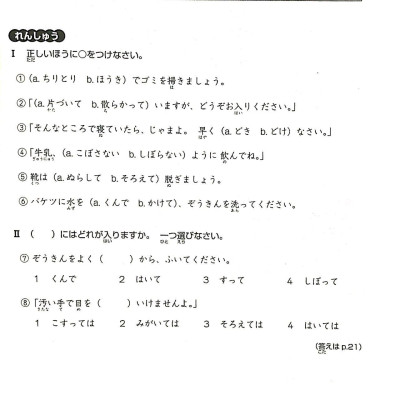 れんしゅう
Ⅰ 正しいほうに○をつけなさい。
ただ
①（a. ちりとり b. ほうき）でゴミを掃きましょう。
は
②「（a. 片づいて b. 散らかって）いますが、どうぞお入りください。」
かた ち はい
③「そんなところで寝ていたら、じゃまよ。 早く（a. どき b. どけ）なさい。」
ね はや
④「牛乳、（a. こぼさない b. しぼらない）ように飲んでね。」
ぎゅうにゅう の
⑤ 靴は（a. ぬらして b. そろえて）脱ぎましょう。
くつ ぬ
⑥ バケツに水を（a. くんで b. かけて）、ぞうきんを洗ってください。
みず あら
Ⅱ （ ）にはどれが入りますか。 一つ選びなさい。
はい ひと えら
⑦ ぞうきんをよく（ ）から、ふいてください。
1 くんで 2 はいて 3 すって 4 しぼって
⑧「汚い手で目を（ ）いけませんよ。」
きたな て め
1 こすっては 2 みがいては 3 そろえては 4 はいては
（答えは p.21）
こた